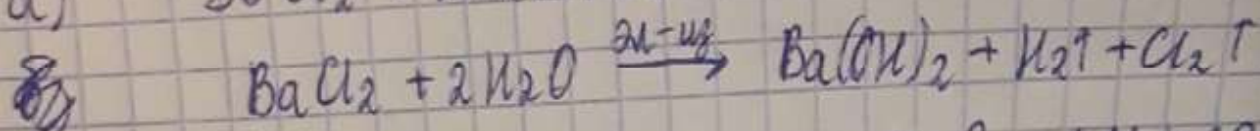 а)
б) BaCl₂ + 2H₂O эл-из → Ba(OH)₂ + H₂↑ + Cl₂↑